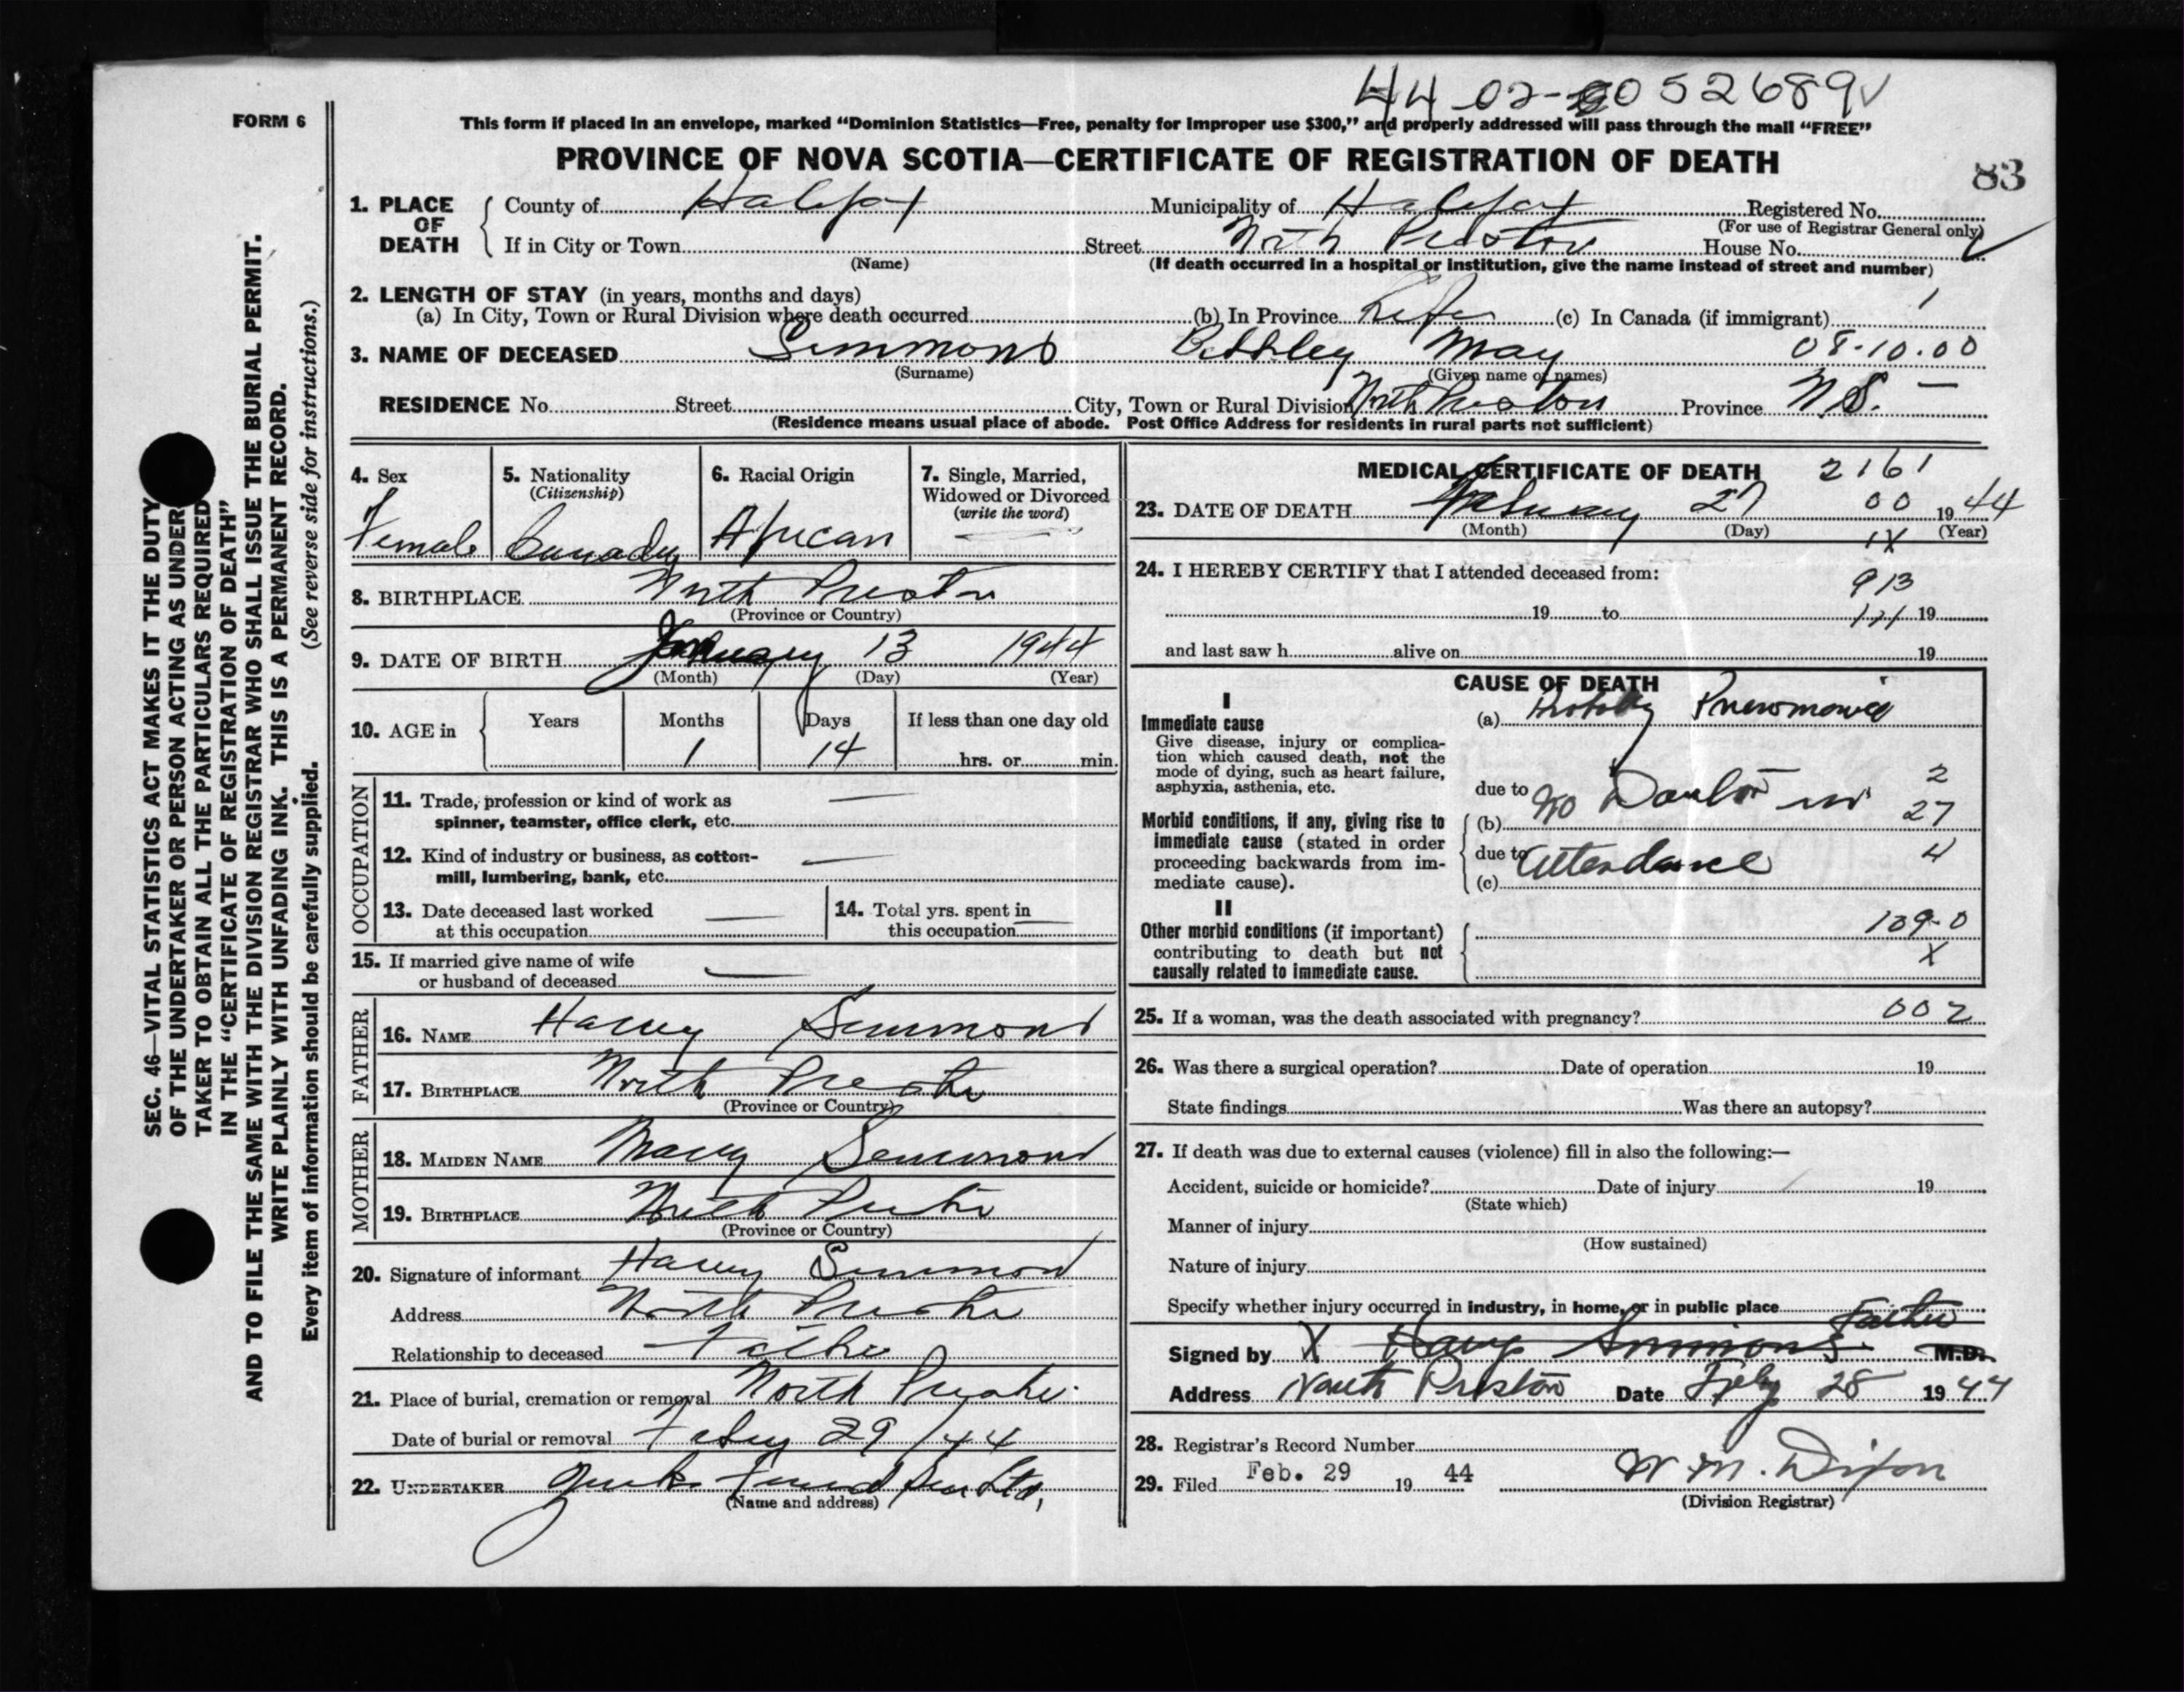 44 02-0052689
FORM 6
This form if placed in an envelope, marked "Dominion Statistics—Free, penalty for improper use $300," and properly addressed will pass through the mail "FREE"
PROVINCE OF NOVA SCOTIA—CERTIFICATE OF REGISTRATION OF DEATH
83
1. PLACE OF DEATH County of Halifax Municipality of Halifax Registered No.
(For use of Registrar General only)
If in City or Town Street North Preston House No.
(Name) (If death occurred in a hospital or institution, give the name instead of street and number)
2. LENGTH OF STAY (in years, months and days)
(a) In City, Town or Rural Division where death occurred (b) In Province Life (c) In Canada (if immigrant)
3. NAME OF DECEASED Simmons May 08-10.00
(Surname) (Given name or names)
RESIDENCE No. Street City, Town or Rural Division North Preston Province N.S. —
(Residence means usual place of abode. Post Office Address for residents in rural parts not sufficient)
4. Sex Female
5. Nationality (Citizenship)
6. Racial Origin African
7. Single, Married, Widowed or Divorced (write the word) —
8. BIRTHPLACE North Preston
(Province or Country)
9. DATE OF BIRTH January 13 1944
(Month) (Day) (Year)
10. AGE in Years Months Days If less than one day old
1 14 hrs. or min.
OCCUPATION
11. Trade, profession or kind of work as —
spinner, teamster, office clerk, etc.
12. Kind of industry or business, as cotton- —
mill, lumbering, bank, etc.
13. Date deceased last worked at this occupation —
14. Total yrs. spent in this occupation —
15. If married give name of wife or husband of deceased —
FATHER
16. NAME Harvey Simmons
17. BIRTHPLACE North Preston
(Province or Country)
MOTHER
18. MAIDEN NAME Mary Simmons
19. BIRTHPLACE North Preston
(Province or Country)
20. Signature of informant Harvey Simmons
Address North Preston
Relationship to deceased Father
21. Place of burial, cremation or removal North Preston
Date of burial or removal Feby 29/44
22. UNDERTAKER Ltd,
(Name and address)
MEDICAL CERTIFICATE OF DEATH 2161
23. DATE OF DEATH February 27 00 1944
(Month) (Day) 1X (Year)
24. I HEREBY CERTIFY that I attended deceased from:
913
19 to 19
and last saw h alive on 19
CAUSE OF DEATH
I
Immediate cause
Give disease, injury or complication which caused death, not the mode of dying, such as heart failure, asphyxia, asthenia, etc.
(a) Probably Pneumonia
due to No Doctor in 2
27
Morbid conditions, if any, giving rise to immediate cause (stated in order proceeding backwards from immediate cause).
(b)
due to attendance 4
(c)
II
Other morbid conditions (if important) contributing to death but not causally related to immediate cause.
109-0
X
25. If a woman, was the death associated with pregnancy? 002
26. Was there a surgical operation? Date of operation 19
State findings Was there an autopsy?
27. If death was due to external causes (violence) fill in also the following:—
Accident, suicide or homicide? Date of injury 19
(State which)
Manner of injury
(How sustained)
Nature of injury
Specify whether injury occurred in industry, in home, or in public place
Father
Signed by X Harvey Simmons M.D.
Address North Preston Date Feby 28 1944
28. Registrar's Record Number
29. Filed Feb. 29 19 44 W. M. Dixon
(Division Registrar)
SEC. 46—VITAL STATISTICS ACT MAKES IT THE DUTY
OF THE UNDERTAKER OR PERSON ACTING AS UNDER
TAKER TO OBTAIN ALL THE PARTICULARS REQUIRED
IN THE "CERTIFICATE OF REGISTRATION OF DEATH"
AND TO FILE THE SAME WITH THE DIVISION REGISTRAR WHO SHALL ISSUE THE BURIAL PERMIT.
WRITE PLAINLY WITH UNFADING INK. THIS IS A PERMANENT RECORD.
Every item of information should be carefully supplied. (See reverse side for instructions.)